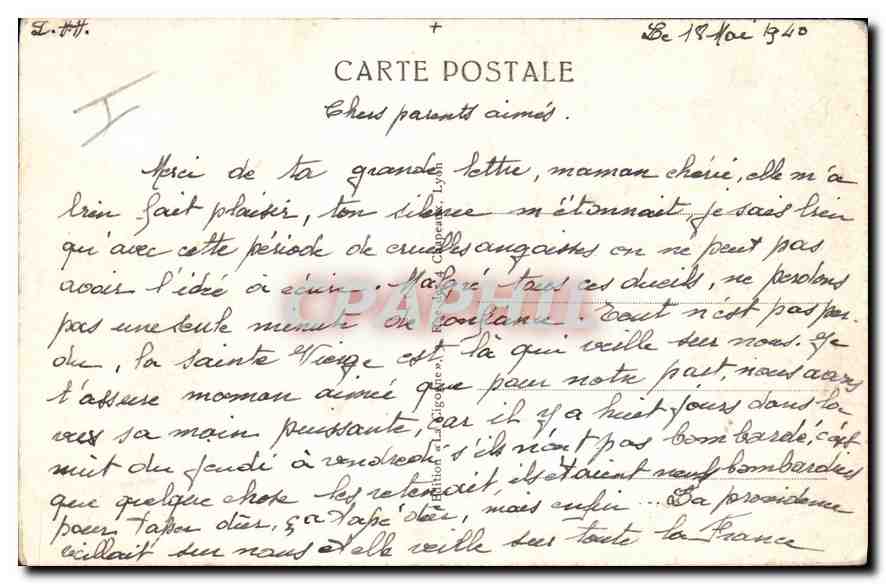 Le 18 Mai 1940
CARTE POSTALE
Chers parents aimés.
Merci de ta grande lettre, maman chérie, elle m'a
bien fait plaisir, ton silence m'étonnait, je sais bien
qu'avec cette période de cruelles angoisses on ne peut pas
avoir l'idée à écrire. Malgré tous ces dueils, ne perdons
pas une seule minute de confiance. Tout n'est pas per-
du, la sainte Vierge est là qui veille sur nous. Je
t'assure maman aimée que pour notre part, nous avons
vu sa main puissante, car il y a huit jours dans la
nuit du jeudi à vendredi s'ils n'ont pas bombardé, c'est
que quelque chose les retenait, ils étaient neuf bombardiers
pour taper dur, ça tapé dur, mais enfin... La providence
veillait sur nous et elle veille sur toute la France
Edition «La Cigogne», Rue des 4 Chapeaux, Lyon
CPAPHIL